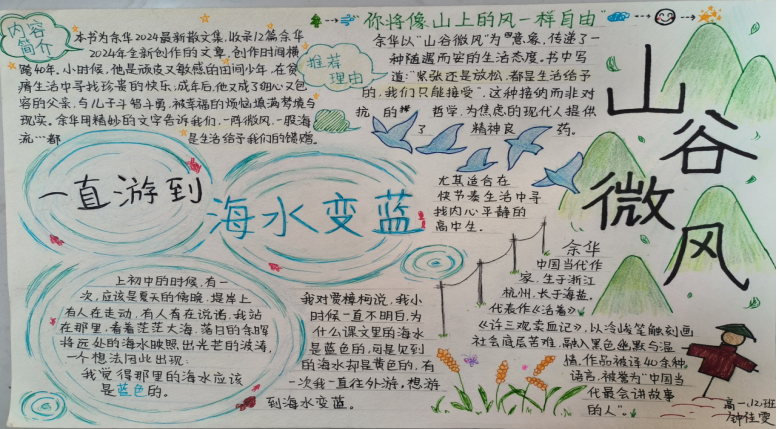 内容
简介
本书为余华2024最新散文集,收录12篇余华
2024年全新创作的文章,创作时间横
跨40年。小时候,他是顽皮又敏感的田间少年,在贫
瘠生活中寻找珍贵的快乐,成年后,他又成了细心又包
容的父亲,与儿子斗智斗勇,被幸福的烦恼填满梦境与
现实。余华用精妙的文字告诉我们,一阵微风,一股海
流…都是生活给予我们的馈赠。
“你将像山上的风一样自由”
推荐
理由
余华以“山谷微风”为意象,传递了一
种随遇而安的生活态度。书中写
道:“紧张还是放松,都是生活给予
的,我们只能接受”,这种接纳而非对
抗的哲学,为焦虑的现代人提供
了精神良药。
尤其适合在
快节奏生活中寻
找内心平静的
高中生。
山谷微风
一直游到
海水变蓝
上初中的时候,有一
次,应该是夏天的傍晚,堤岸上
有人在走动,有人看在说话,我站
在那里,看着茫茫大海,落日的余晖
将远处的海水映照出光芒的波涛,
一个想法因此出现:
我觉得那里的海水应该
是蓝色的。
我对贾樟柯说,我小
时候一直不明白,为
什么课文里的海水
是蓝色的,可是见到
的海水却是黄色的,有
一次我一直往外游,想游
到海水变蓝。
余华
中国当代作
家,生于浙江
杭州,长于海盐。
代表作《活着》
《许三观卖血记》,以冷峻笔触刻画
社会底层苦难,融入黑色幽默与温
情,作品被译40余种
语言,被誉为“中国当
代最会讲故事
的人”。
高一(12)班
钟佳雯